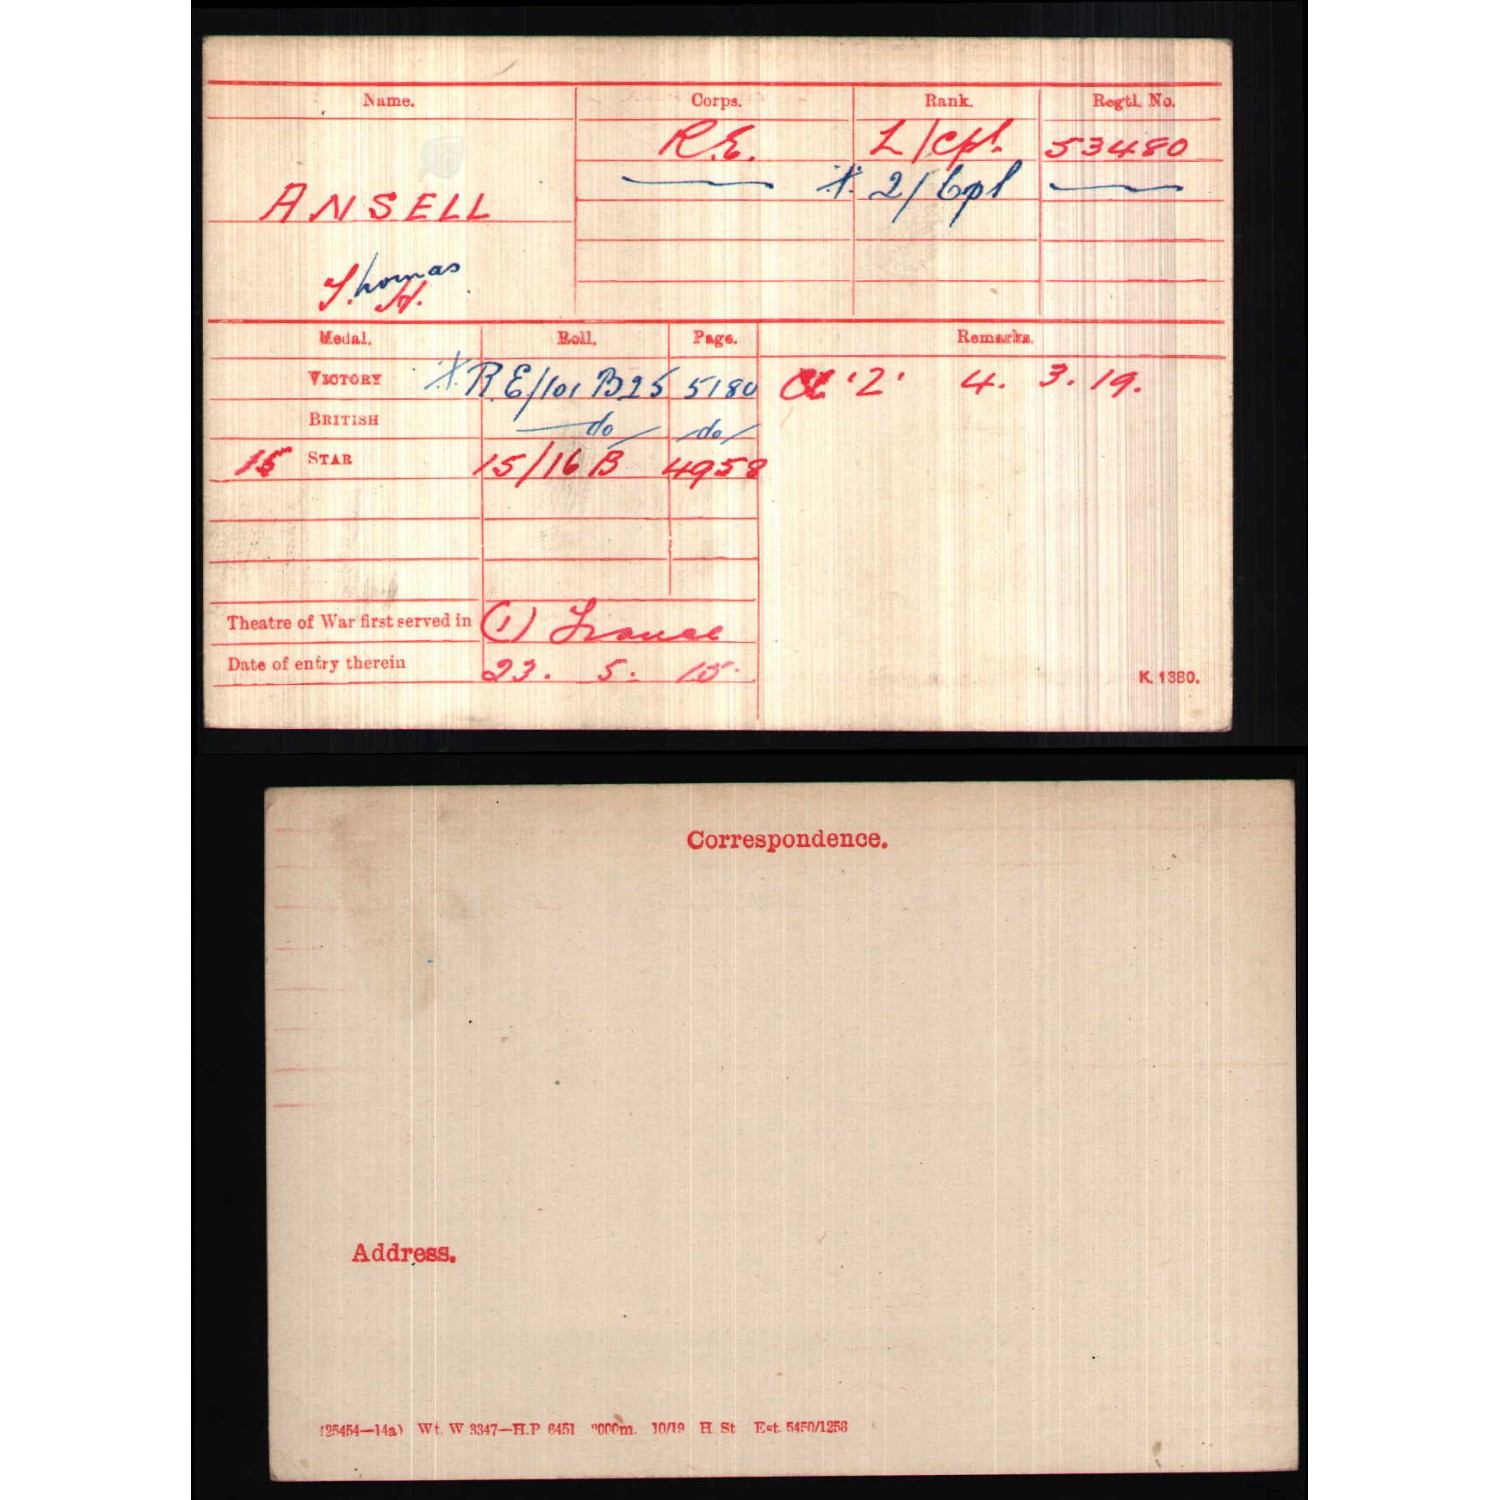 Name. Corps. Rank. Regtl. No.
R.E. L/cpl. 53480
※ 2/Cpl
ANSELL
Thomas
H.
Medal. Roll. Page. Remarks.
VICTORY ※ R.E/101 B25 5180 Cl 'Z' 4. 3. 19.
BRITISH do do
15 STAR 15/16 B 4958
Theatre of War first served in (1) France
Date of entry therein 23. 5. 15.
K. 1380.
Correspondence.
Address.
(25454—14a) Wt. W 3347—H.P. 6451 10/19 H. St. Est. 5450/1256